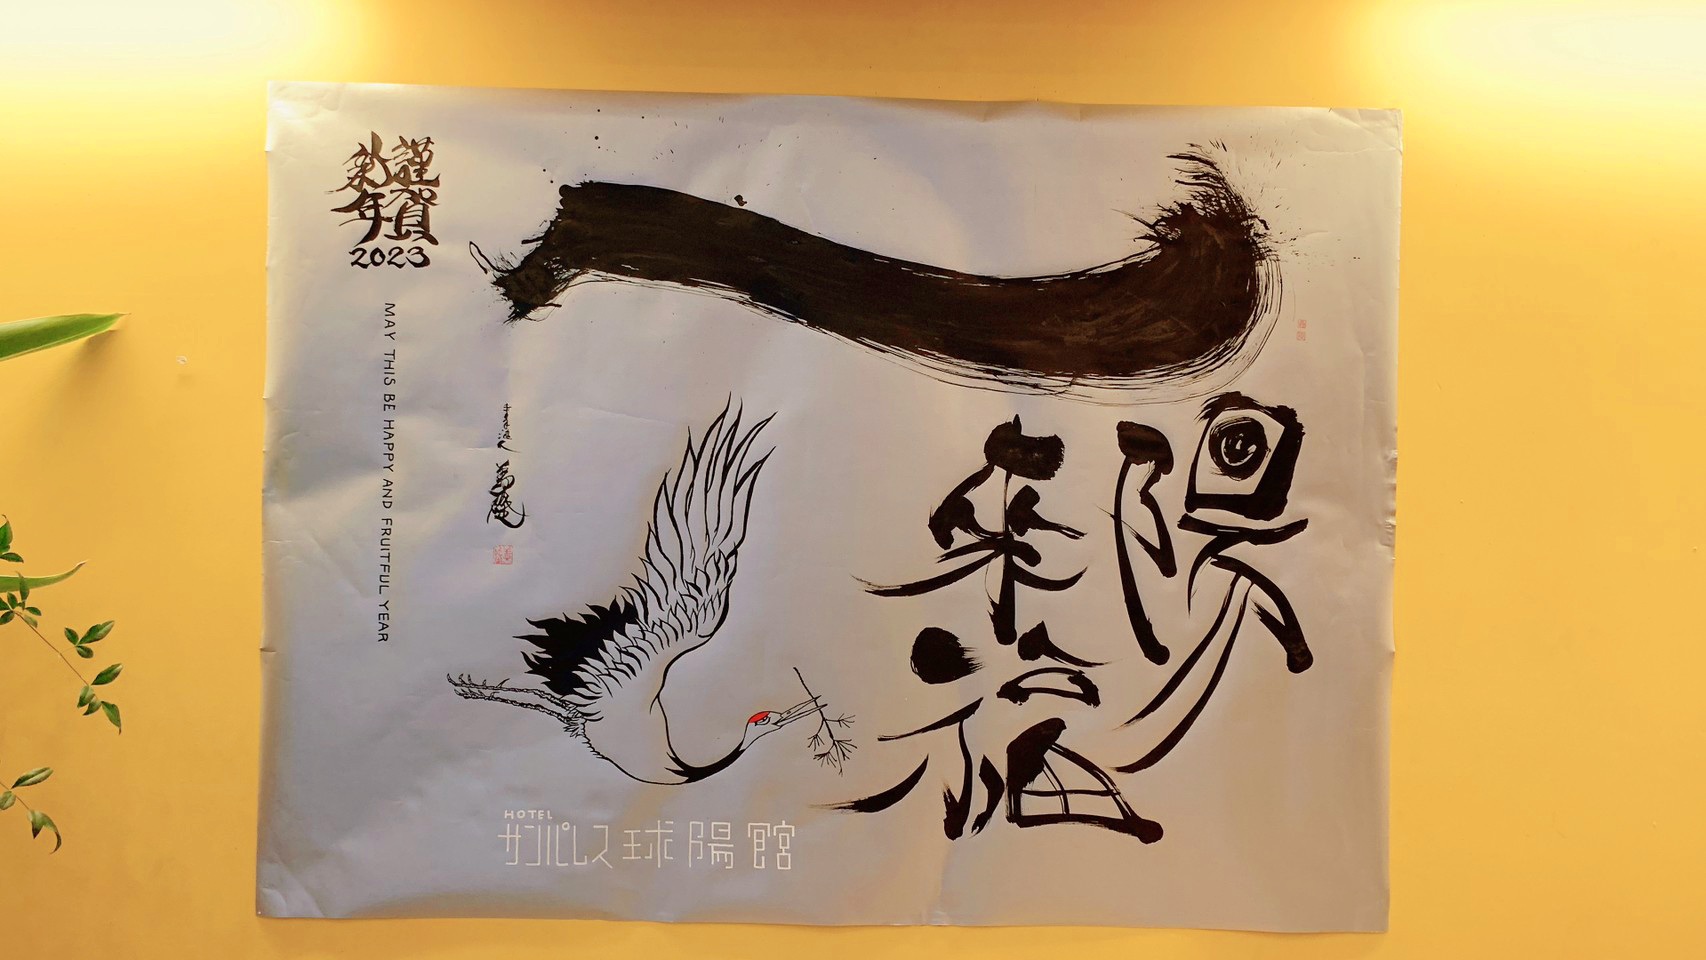 一
陽
来福
謹賀
新年
2023
MAY THIS BE HAPPY AND FRUITFUL YEAR
HOTEL
サンパレス球陽館